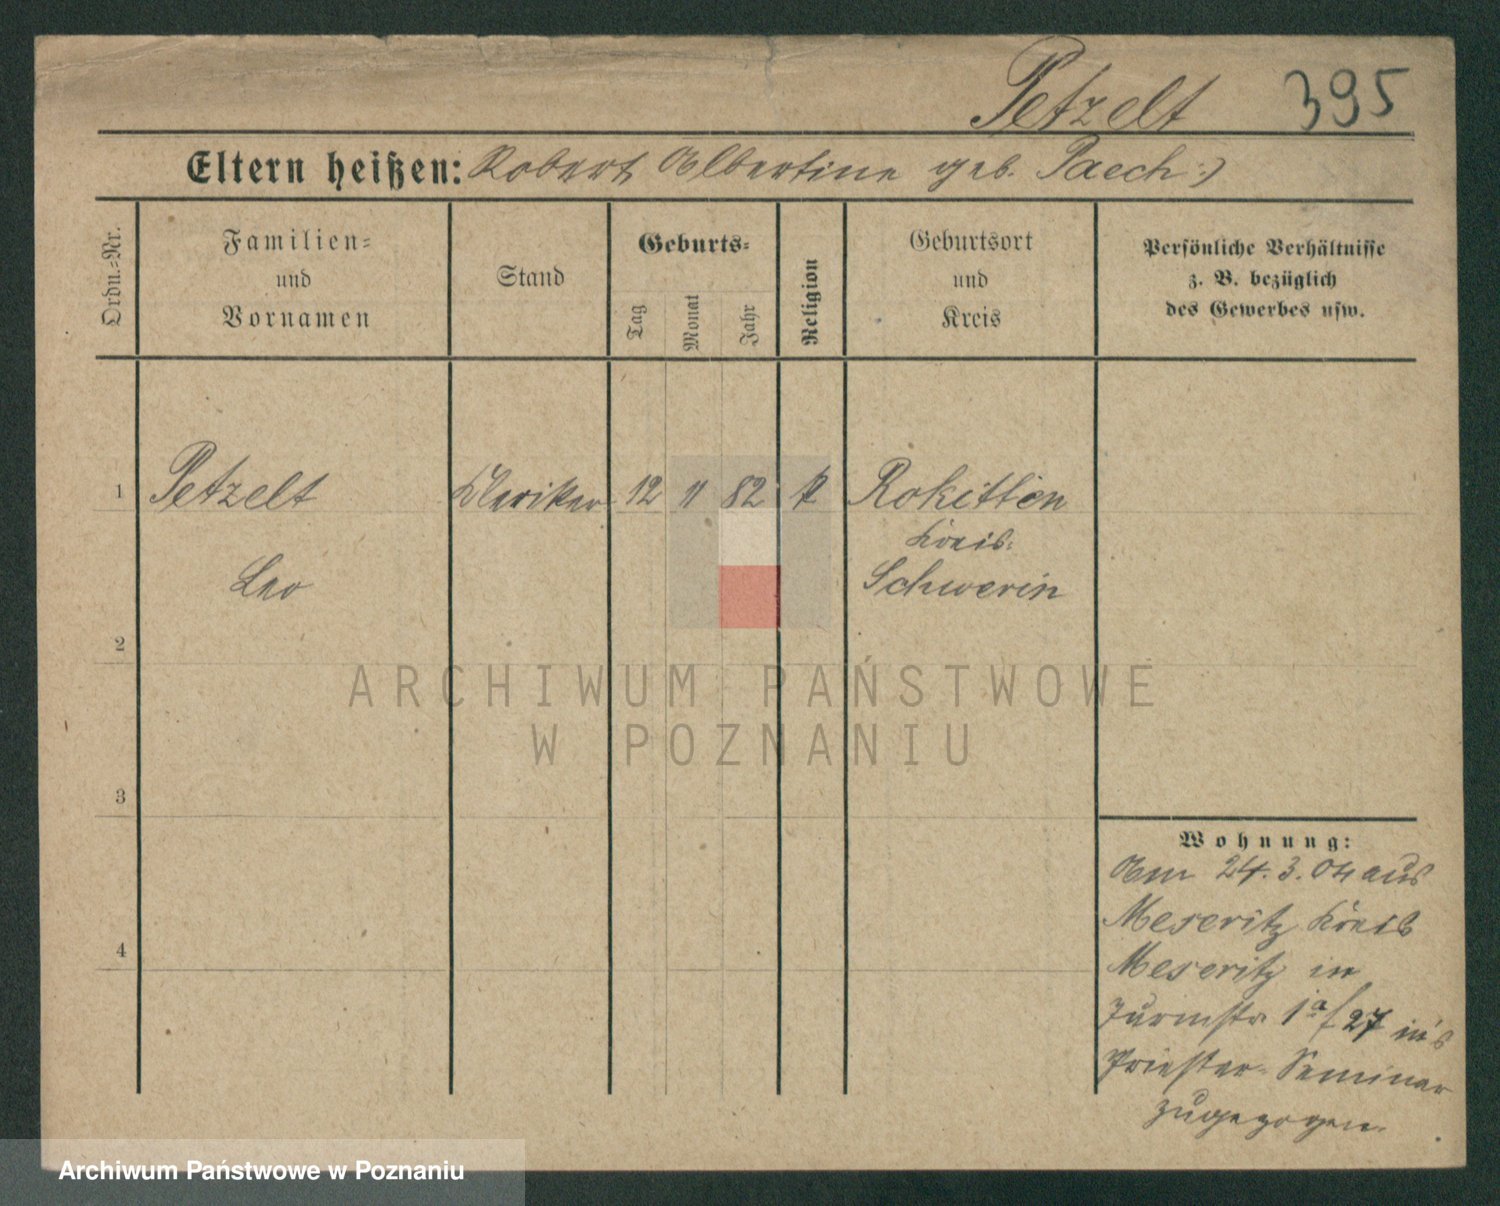 Petzelt 395
Eltern heißen: Robert Albertine geb. Paech :)
Ordn.-Nr.
Familien-
und
Vornamen
Stand
Geburts-
Tag
Monat
Jahr
Religion
Geburtsort
und
Kreis
Persönliche Verhältnisse
z. B. bezüglich
des Gewerbes usw.
1 Petzelt Kleriker 12 11 82 k Rokitten
Kreis:
Leo Schwerin
2
ARCHIWUM PAŃSTWOWE
W POZNANIU
3
Wohnung:
Am 24.3.04 aus
Meseritz Kreis
Meseritz in
1a/27 in's
4
Priester-Seminar
zugezogen.
Archiwum Państwowe w Poznaniu